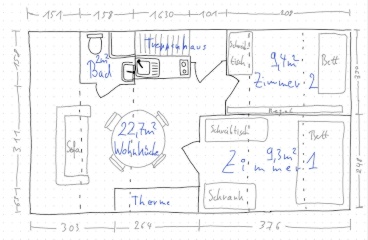 151 158 1630 101 208
Treppenhaus
2m²
Bad
Schreib
tisch
9,4m²
Zimmer 2
Bett
Regal
311
22,7m²
Wohnküche
Sofa
Schreibtisch
9,3m²
Zimmer 1
Bett
248
Therme
Schrank
303 264 376